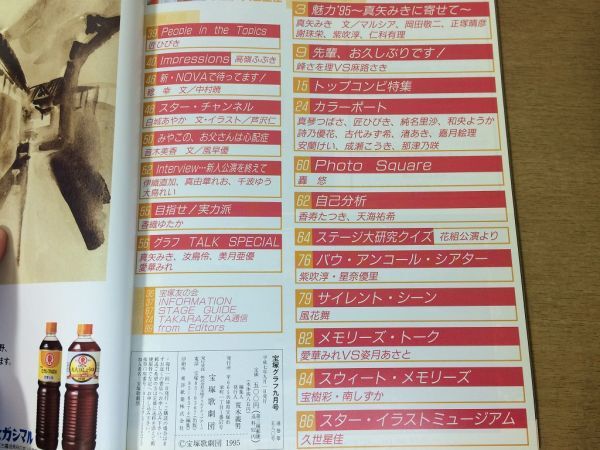 3 魅力'95～真矢みきに寄せて～
真矢みき 文／マルシア、岡田敬二、正塚晴彦
謝珠栄、紫吹淳、仁科有理
9 先輩、お久しぶりです！
峰さを理VS麻路さき
15 トップコンビ特集
24 カラーポート
真琴つばさ、匠ひびき、純名里沙、和央ようか
詩乃優花、古代みず希、渚あき、嘉月絵理
安蘭けい、成瀬こうき、那津乃咲
60 Photo Square
轟 悠
62 自己分析
香寿たつき、天海祐希
64 ステージ大研究クイズ 花組公演より
76 バウ・アンコール・シアター
紫吹淳・星奈優里
79 サイレント・シーン
風花舞
82 メモリーズ・トーク
愛華みれVS姿月あさと
84 スウィート・メモリーズ
宝樹彩・南しずか
86 スター・イラストミュージアム
久世星佳
39 People in the Topics
匠ひびき
40 Impressions 高嶺ふぶき
46 新・NOVAで待ってます！
絵 幸 文／中村暁
48 スター・チャンネル
白城あやか 文・イラスト／芦沢仁
50 みやこの、お父さんは心配症
若木美香 文／風早優
52 Interview…新人公演を終えて
伊織直加、真由華れお、千波ゆう
大鳥れい
55 目指せ！実力派
香織ゆたか
56 グラフ TALK SPECIAL
真矢みき、汝鳥伶、美月亜優
愛華みれ
36 宝塚友の会
37 INFORMATION
67 STAGE GUIDE
74 TAKARAZUKA通信
85 from Editors
宝塚グラフ九月号
宝塚歌劇団
©宝塚歌劇団 1995
ヒガシマル